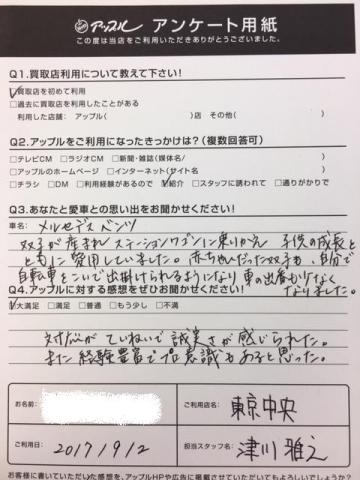 アップル アンケート用紙
この度は当店をご利用いただきありがとうございました。
Q1.買取店利用について教えて下さい!
☑買取店を初めて利用
□過去に買取店を利用したことがある
利用した店舗: アップル( )店 その他( )
Q2.アップルをご利用になったきっかけは?(複数回答可)
□テレビCM □ラジオCM □新聞・雑誌(媒体名/ )
□アップルのホームページ □インターネット(サイト名 )
□チラシ □DM □利用経験があるので ☑紹介 □スタッフに誘われて □通りがかりで
Q3.あなたと愛車との思い出をお聞かせください!
車名: メルセデスベンツ
双子が産まれステーションワゴンに乗りかえ 子供の成長と
ともに愛用していました。赤ちゃんだった双子も、自分で
自転車をこいで出掛けられるようになり車の出番も少なく
なりました。
Q4.アップルに対する感想をぜひお聞かせください!
☑大満足 □満足 □普通 □もう少し □不満
対応がていねいで誠実さが感じられた。
また経験豊富でプロ意識もあると思った。
お名前:
ご利用店名: 東京中央
ご利用日: 2017/9/2
担当スタッフ名: 津川雅之
お客様に書いていただいた感想を、アップルHPや広告に掲載させていただいてもよろしいでしょうか?